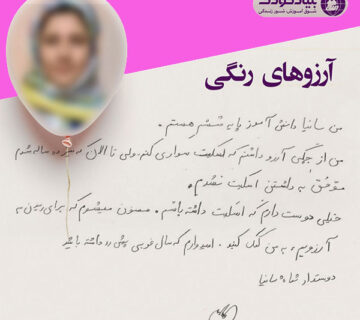 بنیاد کودک
شوق آموزش، شور زندگی
آرزوهای رنگی
من سانیا دانش آموز پایه ششم هستم.
من از بچگی آرزو داشتم که اسکیت سواری کنم ولی تا الان که ساله شدم
موفق به داشتن اسکیت نشدم.
خیلی دوست دارم که اسکیت داشته باشم. ممنون میشوم که برای رسیدن به
آرزویم، به من کمک کنید. امیدوارم که سال خوبی پیش رو داشته باشید
دوستدار شما سانیا